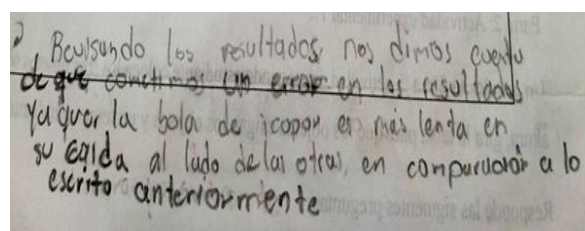 2 Beuisando los resultados, nos dimos cuenta
de que cometimos un error en los resultados
Ya quer la bola de icopor es más lenta en
su caida al lado de las otras, en comparación a lo
escrito anteriormente